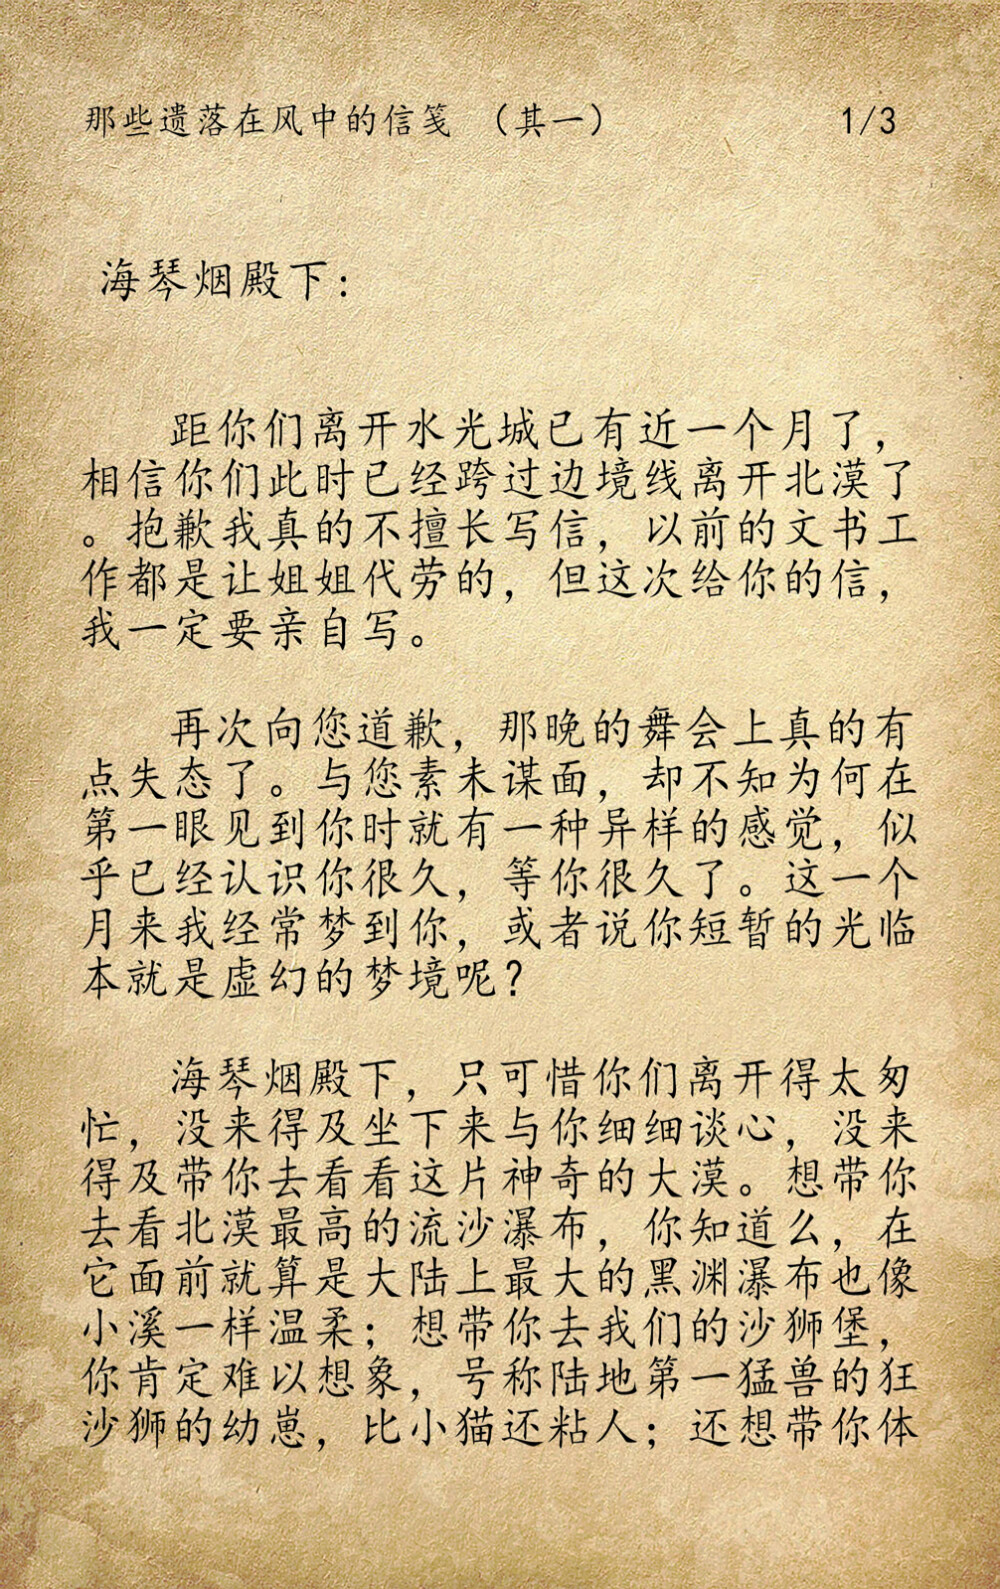 那些遗落在风中的信笺 （其一） 1/3
海琴烟殿下：
距你们离开水光城已有近一个月了，
相信你们此时已经跨过边境线离开北漠了
。抱歉我真的不擅长写信，以前的文书工
作都是让姐姐代劳的，但这次给你的信，
我一定要亲自写。
再次向您道歉，那晚的舞会上真的有
点失态了。与您素未谋面，却不知为何在
第一眼见到你时就有一种异样的感觉，似
乎已经认识你很久，等你很久了。这一个
月来我经常梦到你，或者说你短暂的光临
本就是虚幻的梦境呢？
海琴烟殿下，只可惜你们离开得太匆
忙，没来得及坐下来与你细细谈心，没来
得及带你去看看这片神奇的大漠。想带你
去看北漠最高的流沙瀑布，你知道么，在
它面前就算是大陆上最大的黑渊瀑布也像
小溪一样温柔；想带你去我们的沙狮堡，
你肯定难以想象，号称陆地第一猛兽的狂
沙狮的幼崽，比小猫还粘人；还想带你体